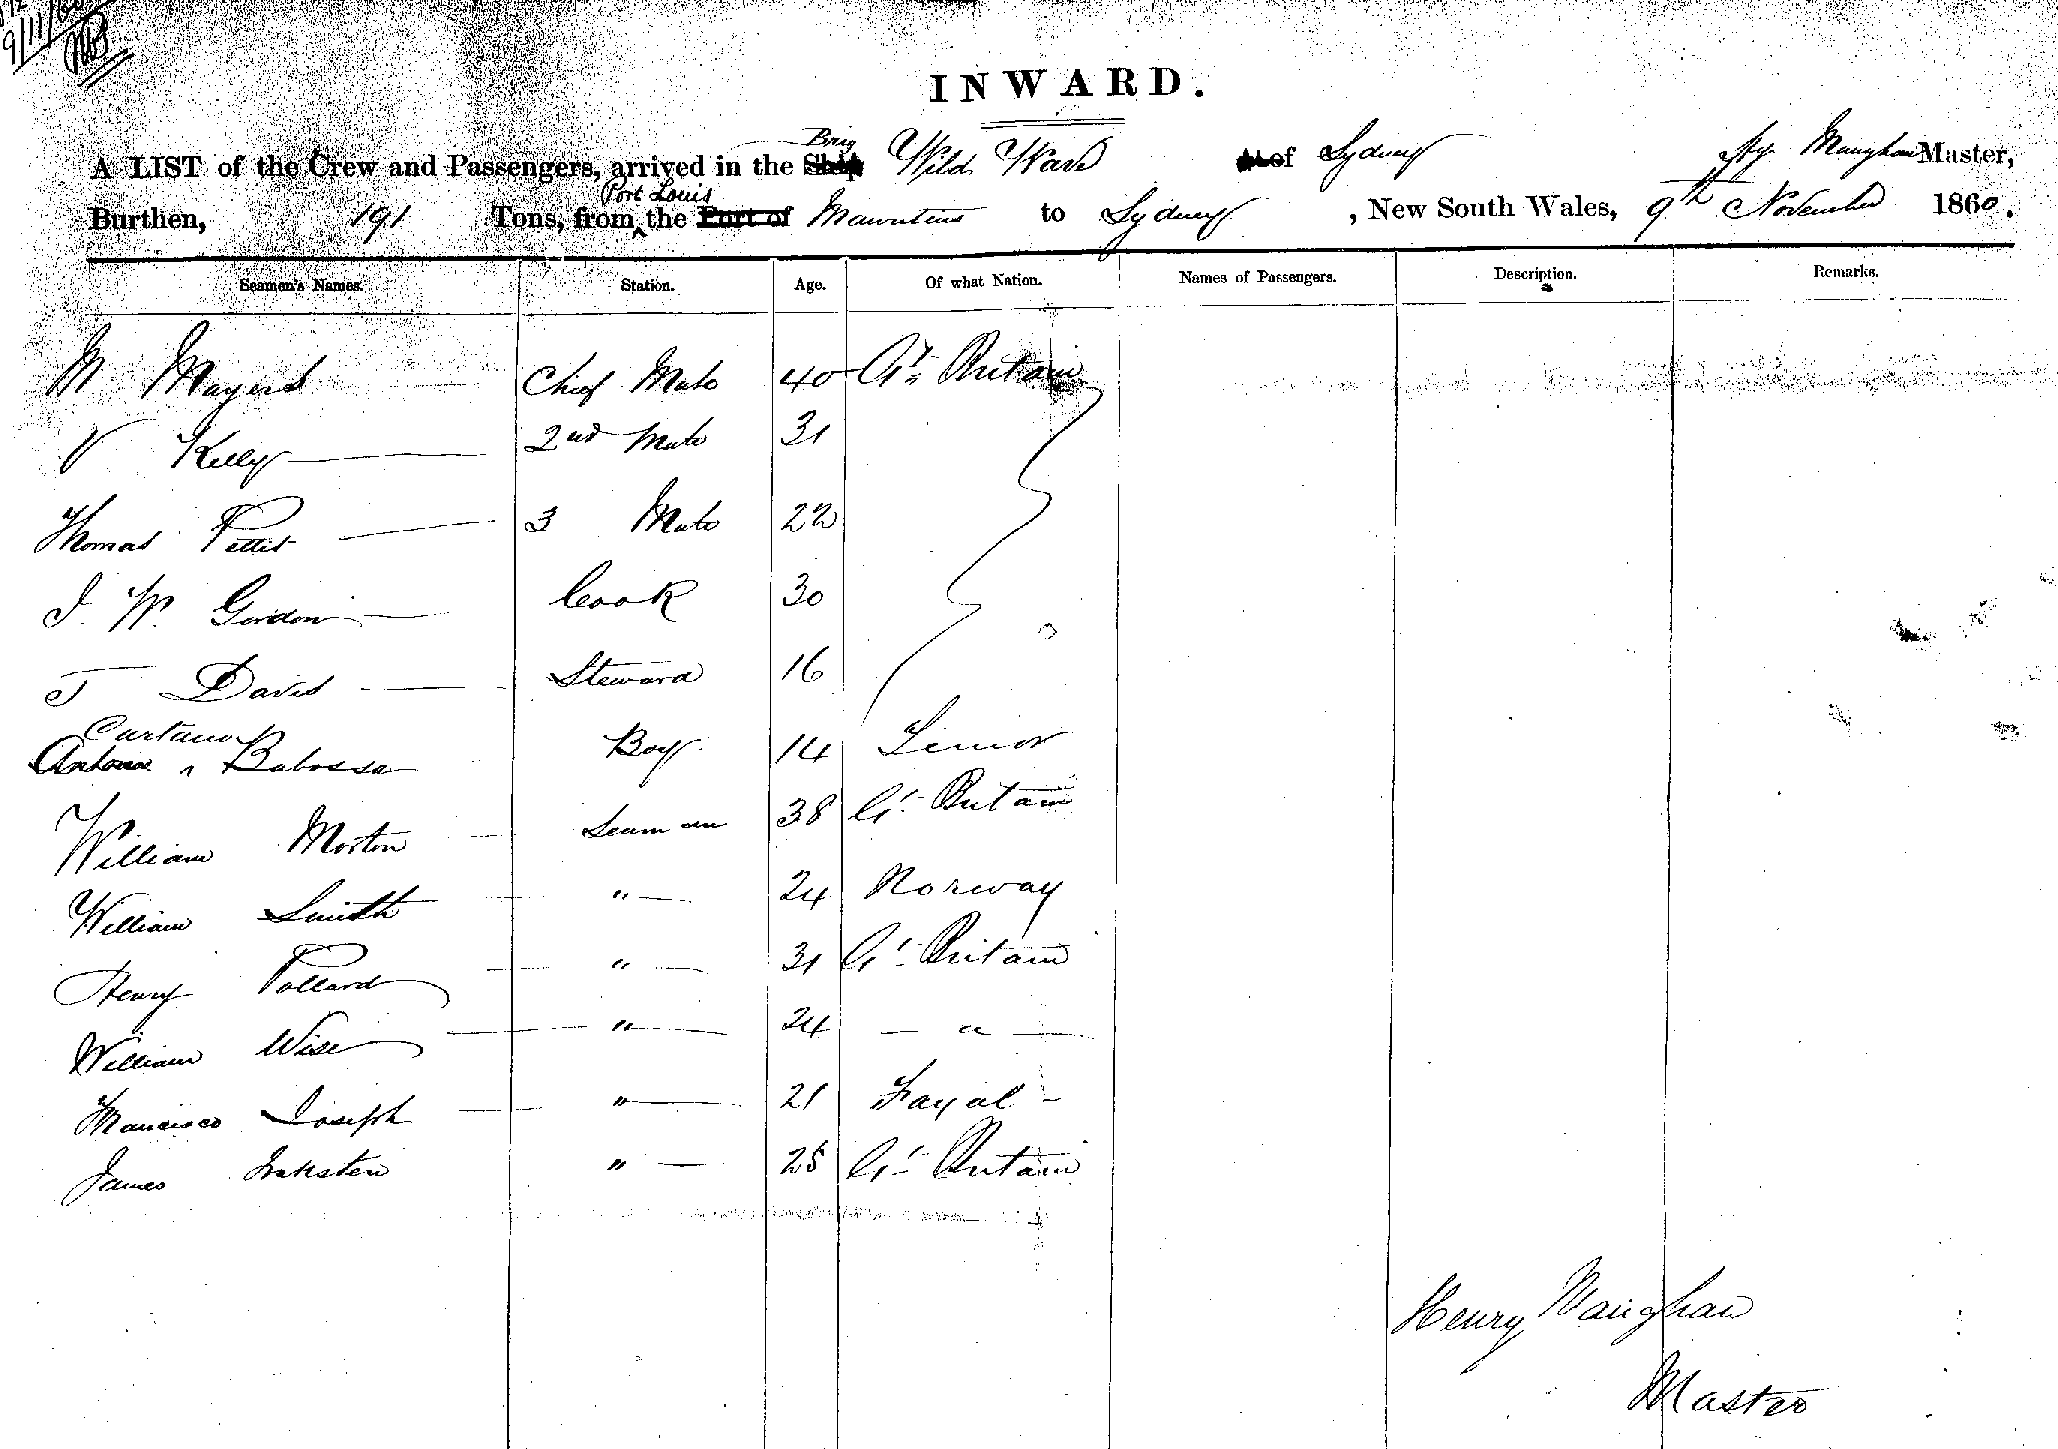 9/11/60
INWARD.
A LIST of the Crew and Passengers, arrived in the Ship Brig Wild Wave of Sydney Hy Maughan Master,
Burthen, 191 Tons, from Port Louis the Port of Mauritius to Sydney , New South Wales, 9th November 1860.
Seamen's Names. Station. Age. Of what Nation. Names of Passengers. Description. Remarks.
M Mayers Chief Mate 40 Gt. Britain
V Kelly 2nd Mate 31
Thomas Pettit 3 Mate 22
J. W. Gordon Cook 30
J Davis Steward 16
Babossa Boy 14
William Morton Seaman 38 Gt. Britain
William Smith " 24 Norway
Henry Pollard " 31 Gt. Britain
William Wise " 24 "
Joseph " 21 Fayal
James " 25 Gt. Britain
Henry Maughan
Master